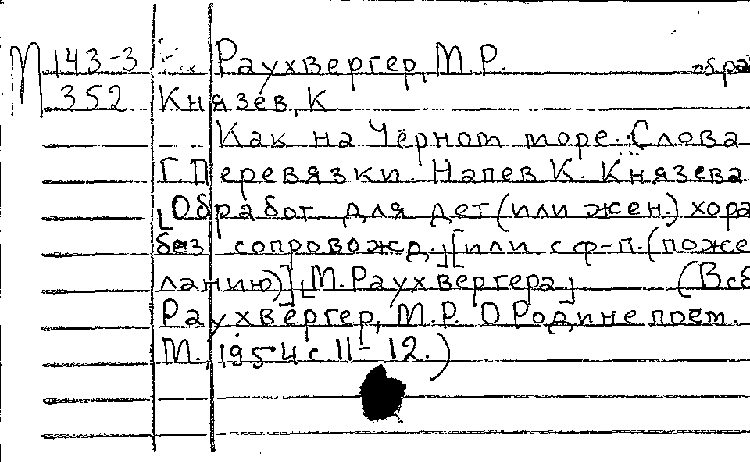 П 143-3 Раухвергер, М.Р. обра
352 Князев, К
Как на Чёрном море. Слова
Г. Перевязки. Напев К. Князева
[Обработ. для дет. (или жен.) хора
без сопровожд.] [или с ф-п. (по же-
ланию)] [М. Раухвергера] (В сб
Раухвергер, М.Р. О Родине поем.
М., 1954 с 11-12.)